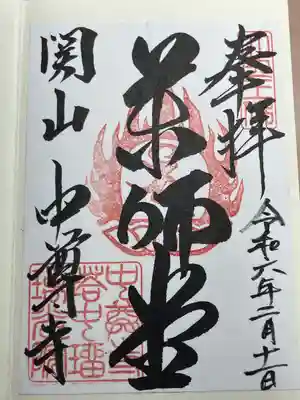 奉拝
令和六年二月十二日
薬師堂
関山 中尊寺